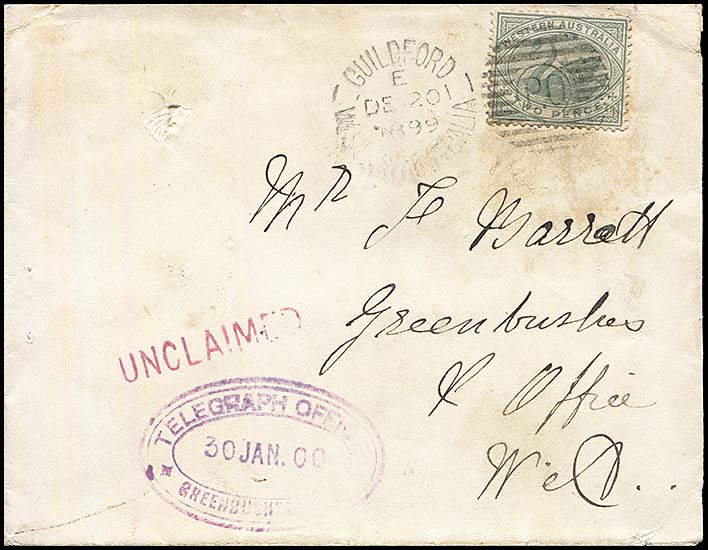 WESTERN AUSTRALIA
TWO PENCE
GUILDFORD
E
DE 20
99
WESTERN AUSTRALIA
Mr F Barrett
Greenbushes
P Office
W.A.
UNCLAIMED
TELEGRAPH OFFICE
30 JAN. 00
GREENBUSH